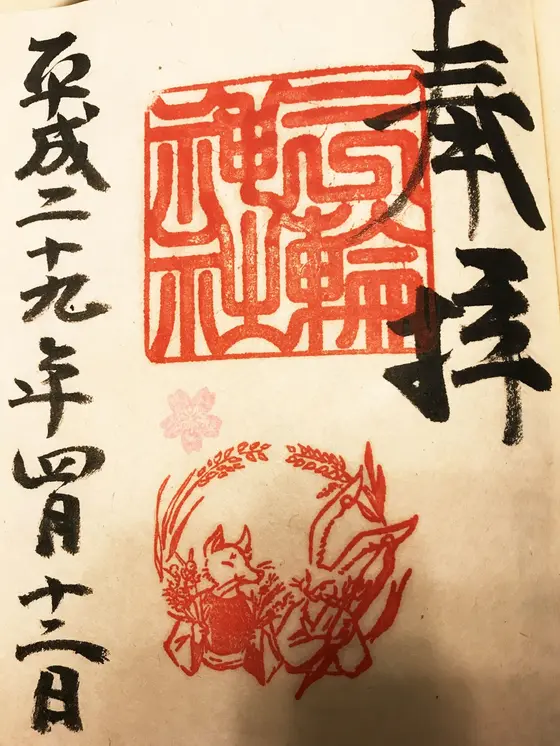 奉拝
輪
神社
平成二十九年四月十二日